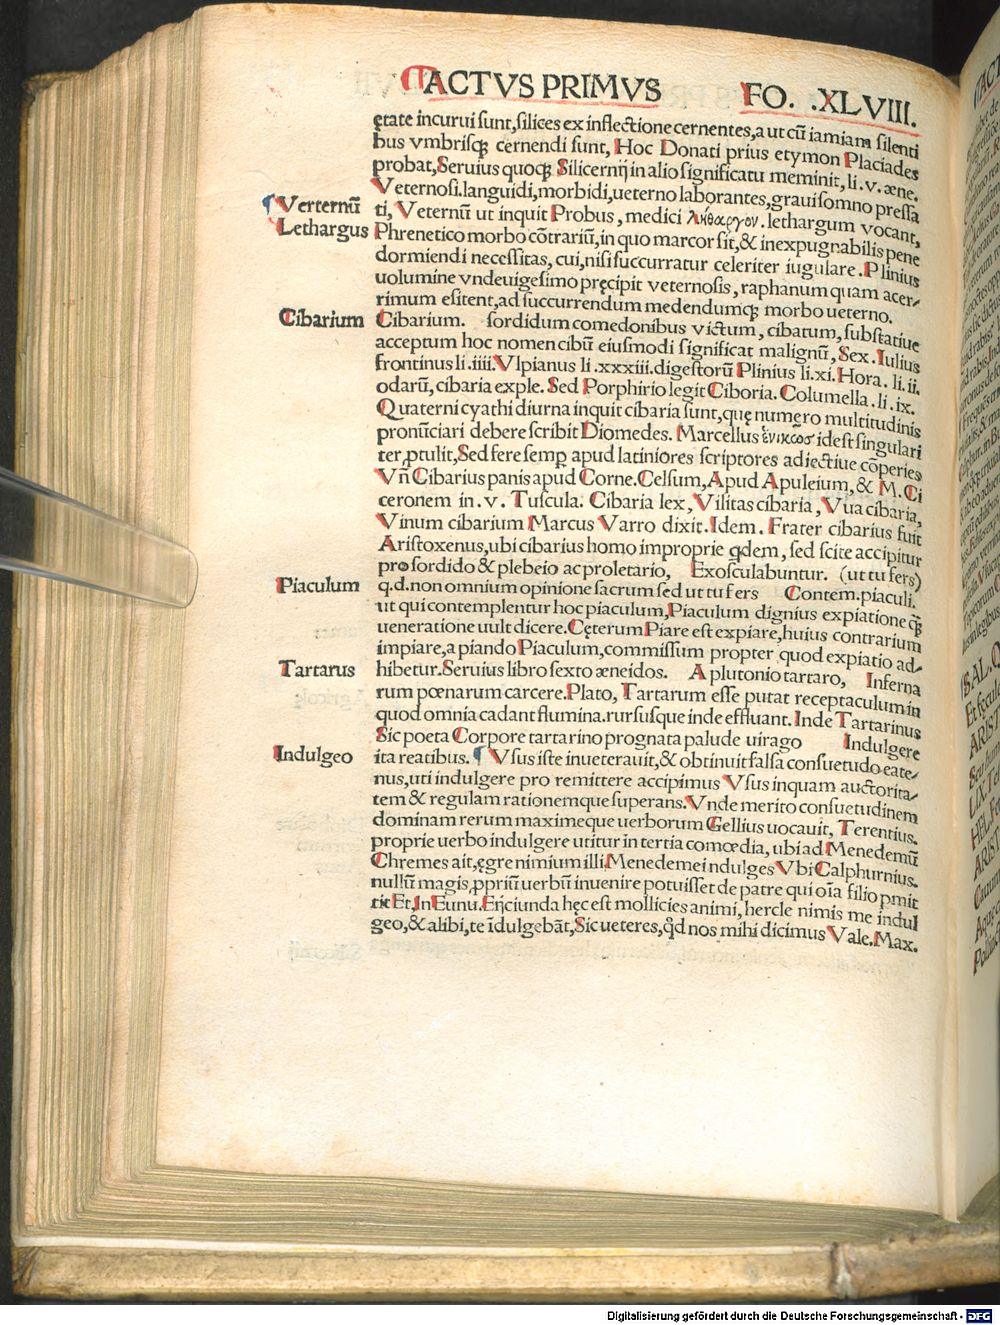 ACTVS PRIMVS FO. .XLVIII.
ętate incurui sunt,silices ex inflectione cernentes,a ut cū iamiam silenti
bus vmbrisqꝫ cernendi sunt, Hoc Donati prius etymon Placiades
probat,Seruius quoqꝫ Silicernij in alio significatu meminit, li. v. æne.
Veternosi.languidi,morbidi,ueterno laborantes,graui somno pressa
¶ Verternū
ti, Veternū ut inquit Probus, medici λήθαργον. lethargum vocant,
Lethargus
Phrenetico morbo cōtrariū,in quo marcor sit,& inexpugnabilis pene
dormiendi necessitas, cui,nisi succurratur celeriter iugulare. Plinius
uolumine vndeuigesimo pręcipit veternosis, raphanum quam acer/
rimum esitent,ad succurrendum medendumqꝫ morbo ueterno.
Cibarium
Cibarium. sordidum comedonibus victum, cibatum, substātiue
acceptum hoc nomen cibū eiusmodi significat malignū, Sex. Iulius
frontinus li .iiii. Vlpianus li .xxxiii. digestorū Plinius li.xi. Hora. li. ii.
odarū, cibaria exple. Sed Porphirio legit Ciboria. Columella. li. ix.
Quaterni cyathi diurna inquit cibaria sunt, quę numero multitudinis
pronūciari debere scribit Diomedes. Marcellus ἑνικῶσ idest singulari
ter,ptulit,Sed fere semp apud latiniores scriptores adiectiue cōperies
Vn̄ Cibarius panis apud Corne. Celsum, Apud Apuleium, & M. Ci
ceronem in. v. Tuscula. Cibaria lex, Vilitas cibaria, Vua cibaria,
Vinum cibarium Marcus Varro dixit. Idem. Frater cibarius fuit
Aristoxenus,ubi cibarius homo improprie qdem, sed scite accipitur
pro sordido & plebeio ac proletario, Exosculabuntur. (ut tu fers)
Piaculum
q.d. non omnium opinione sacrum sed ut tu fers Contem.piaculi.
ut qui contemplentur hoc piaculum, Piaculum dignius expiatione q̄ꝫ
ueneratione uult dicere. Cęterum Piare est expiare, huius contrarium
impiare,a piando Piaculum,commissum propter quod expiatio ad/
Tartarus
hibetur. Seruius libro sexto æneidos. A plutonio tartaro, Inferna
rum pœnarum carcere. Plato, Tartarum esse putat receptaculum in
quod omnia cadant flumina. rursusque inde effluant. Inde Tartarinus
Sic poeta Corpore tartarino prognata palude uirago Indulgere
Indulgeo
ita reatibus. ¶ Vsus iste inueterauit,& obtinuit falsa consuetudo eate/
nus,uti indulgere pro remittere accipimus Vsus inquam auctorita/
tem & regulam rationemque superans. Vnde merito consuetudinem
dominam rerum maximeque uerborum Gellius uocauit, Terentius.
proprie uerbo indulgere utitur in tertia comœdia, ubi ad Menedemū
Chremes ait,ęgre nimium illi Menedeme indulges Vbi Calphurnius.
nullū magis,ppriū uerbū inuenire potuisset de patre qui oīa filio pmit
tit Et. In Eunu. Eijciunda hęc est mollicies animi, hercle nimis me indul
geo,& alibi,te īdulgebāt,Sic ueteres,qd nos mihi dicimus Vale. Max.
Digitalisierung gefördert durch die Deutsche Forschungsgemeinschaft - DFG